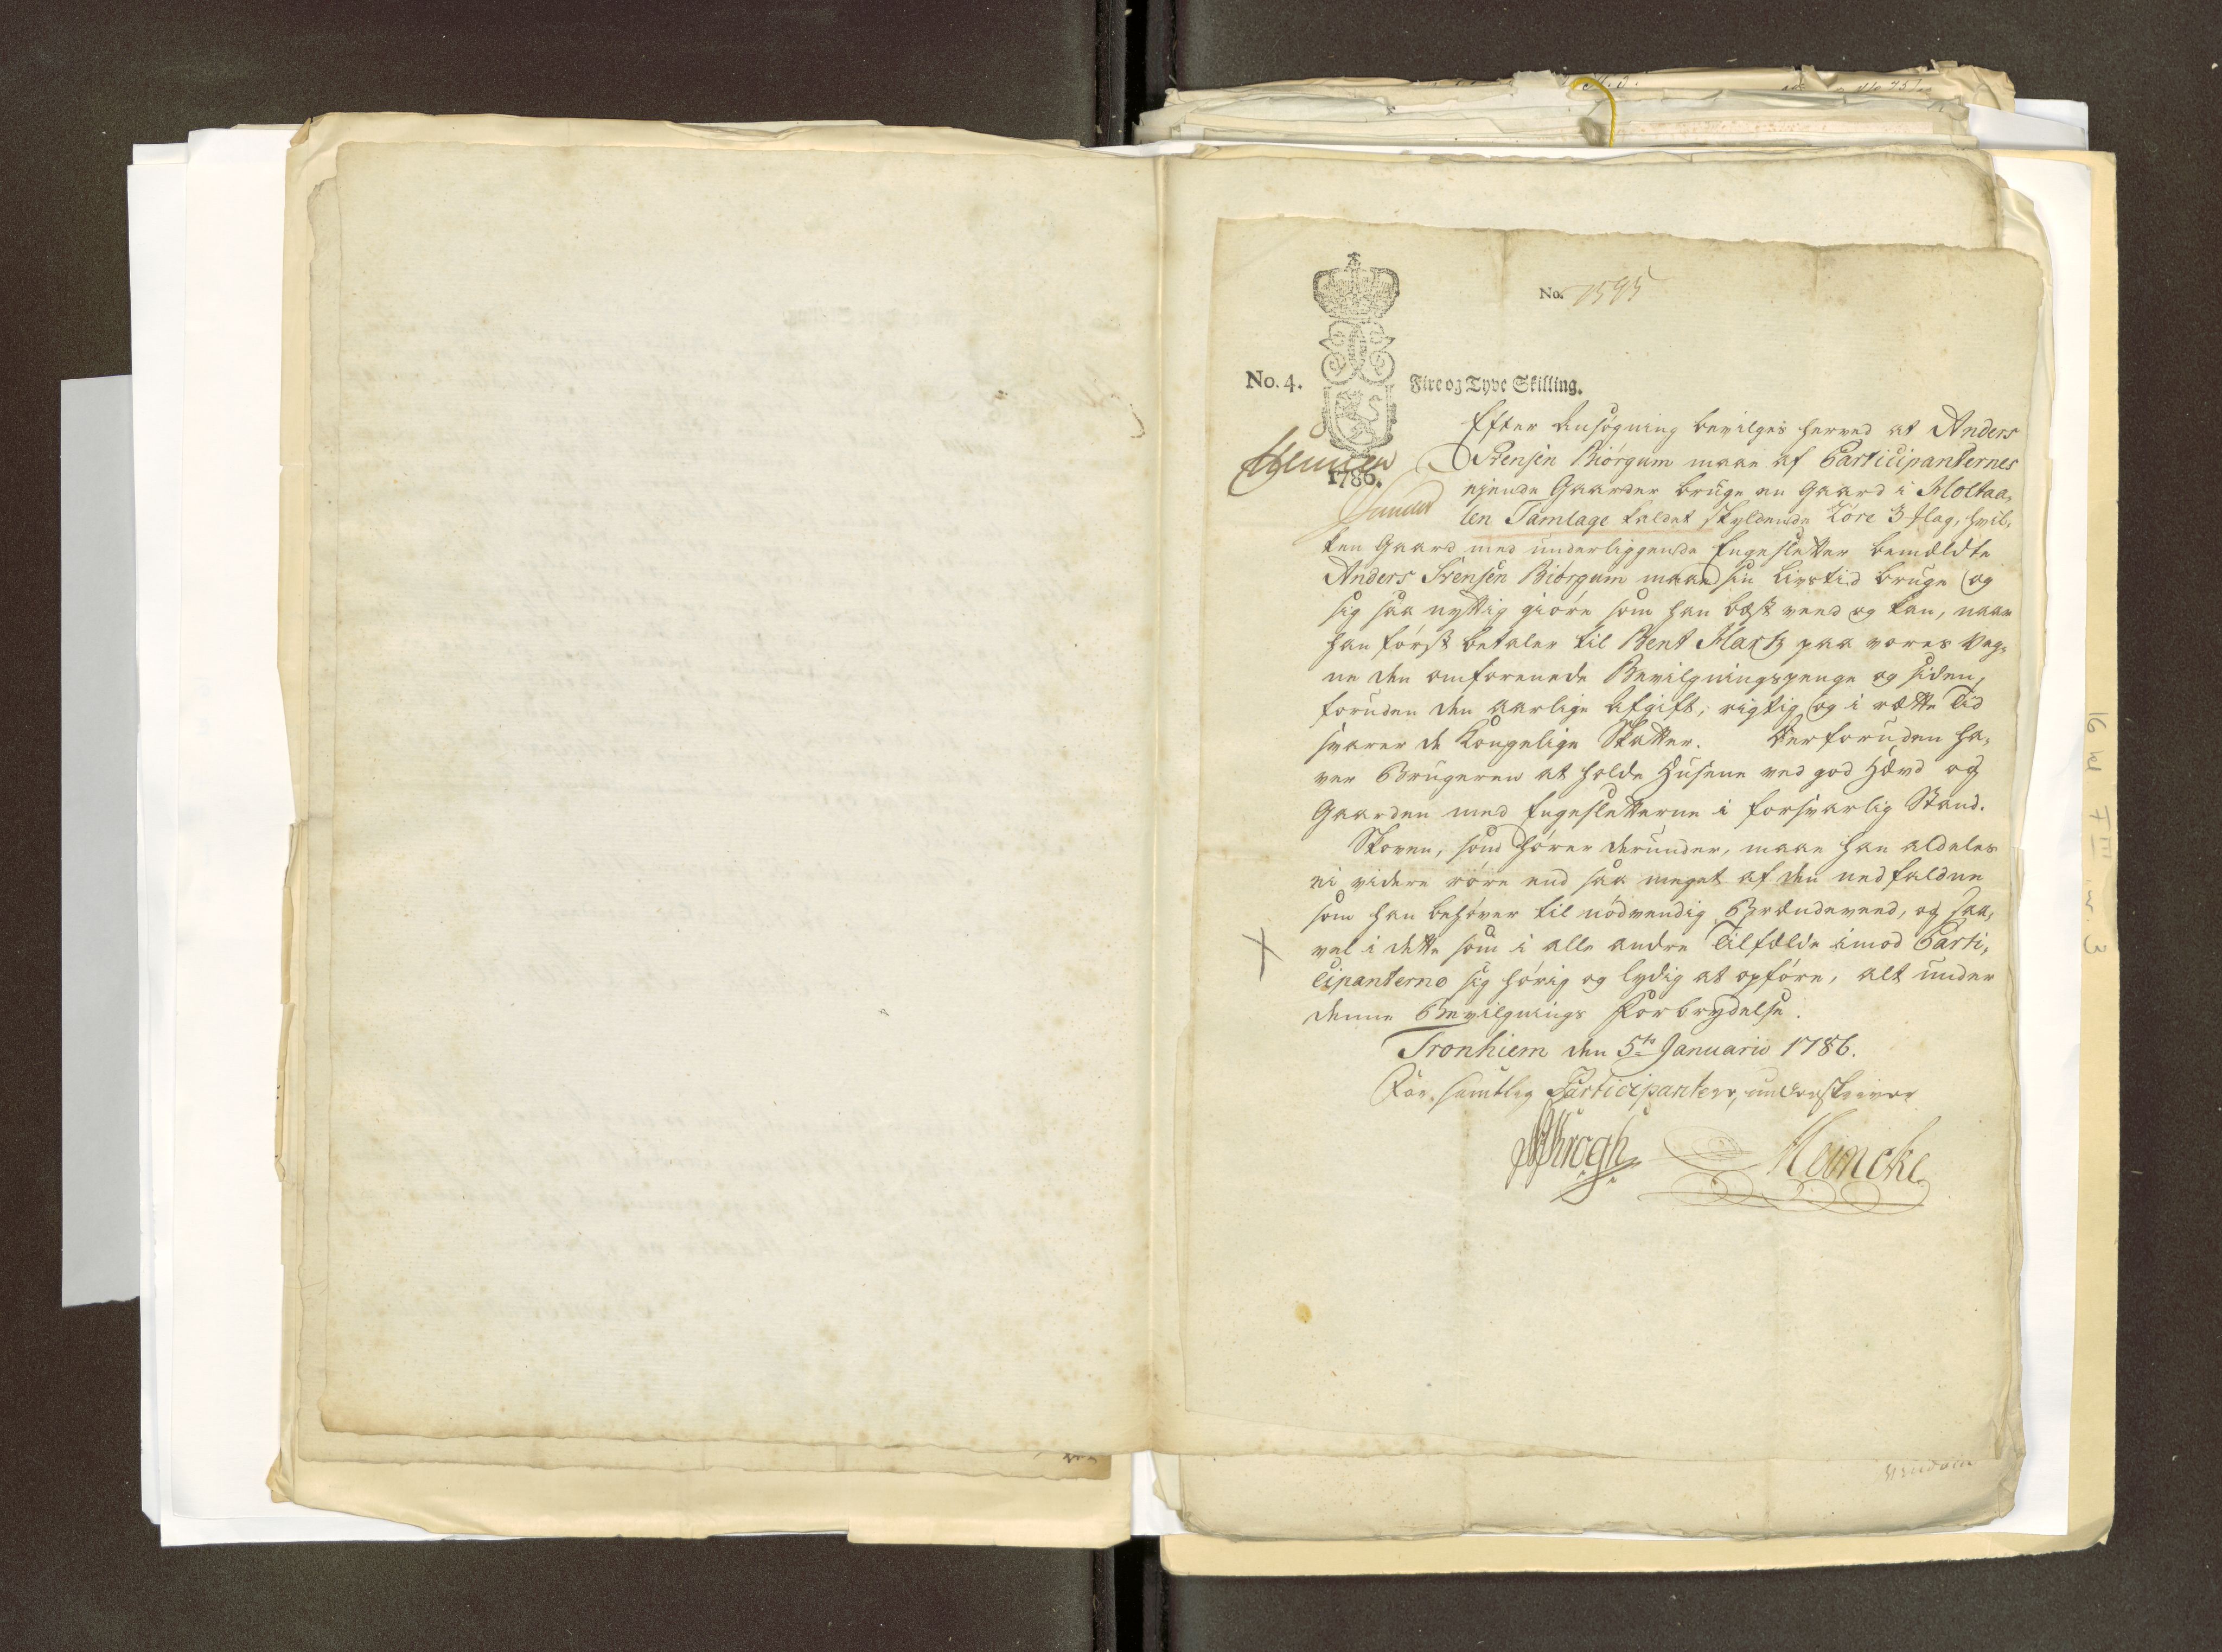 No. 1595
No. 4. Fire og Tyve Skilling.
1786.
Efter Ansøgning bevilges herved at Anders
Svensen Biörgum maae af Participanternes
ejende Gaarder bruge en Gaard i Moltaa,
len Tamlage kaldet skyldende Löre 3 Mag, hvil,
ken Gaard med underliggende Engesletter bemældte
Anders Svensen Biörgum maae sin Livstid bruge og
sig saa nyttig giöre som han best veed og kan, naar
han först betaler til Bent Hartz paa vores Veg,
ne den omforenede Bevilgningspenge og siden,
foruden den aarlige Afgift, rigtig og i rette Tid
svarer de Kongelige Skatter. Derforuden ha,
ver Brugeren at holde Husene ved god Hævd og
Gaarden med Engesletterne i forsvarlig Stand.
Skoven, som hörer derunder, maae han aldeles
ei videre röre end saa meget af den nedfaldne
som han behöver til nödvendig Brændeveed, og saa,
vel i dette som i alle andre Tilfælde imod Parti,
cipanterne sig hörig og lydig at opföre, alt under
denne Bevilgnings Forbrydelse.
Tronhiem den 5te Januario 1786.
For samtlig Participantere, underskriver
Krogh Meincke
16 pk F III nr. 3